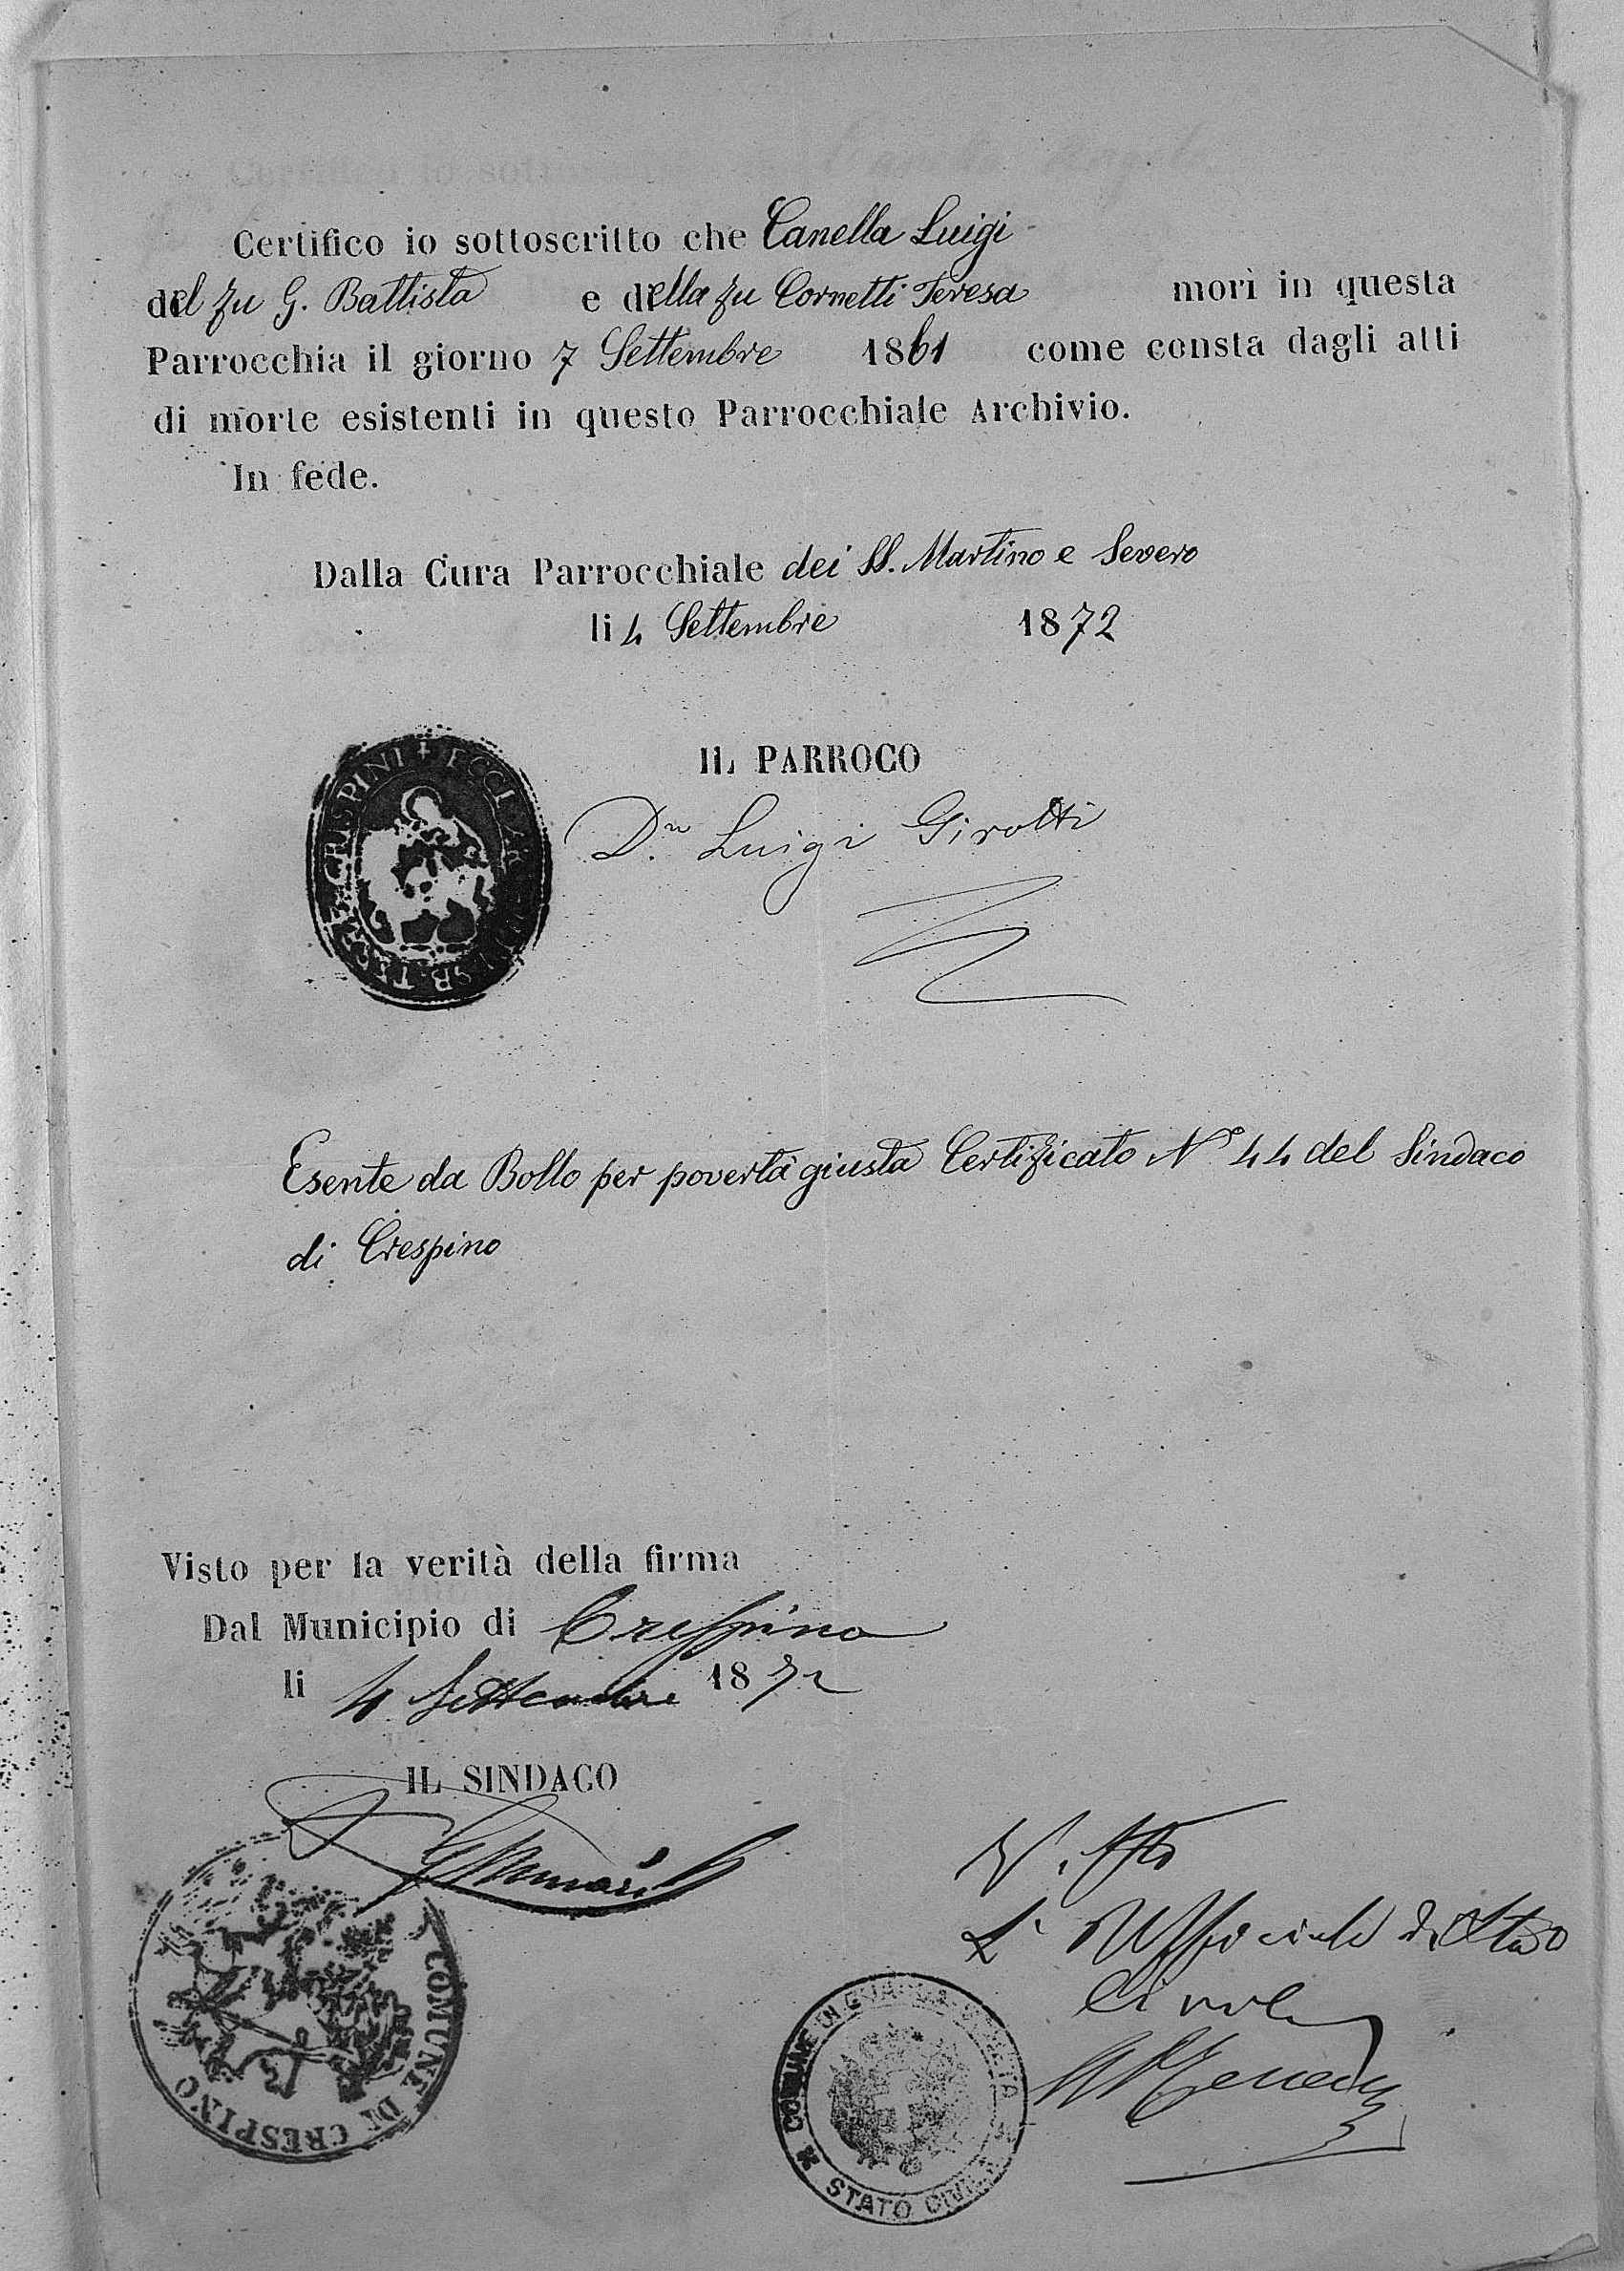 Certifico io sottoscritto che Canella Luigi
del fu G. Battista e della fu Cornetti Teresa morì in questa
Parrocchia il giorno 7 Settembre 1861 come consta dagli atti
di morte esistenti in questo Parrocchiale Archivio.
In fede.
Dalla Cura Parrocchiale dei SS. Martino e Severo
li 4 Settembre 1872
IL PARROCO
CRISPINI
Dn. Luigi Girotti
Esente da Bollo per povertà giusta Certificato N° 44 del Sindaco
di Crespino
Visto per la verità della firma
Dal Municipio di Crespino
li 4 Settembre 1872
IL SINDACO
COMUNE DI CRESPINO
L'Uffiziale di Stato
Civile
COMUNE DI GUARDA VENETA
STATO CIVILE